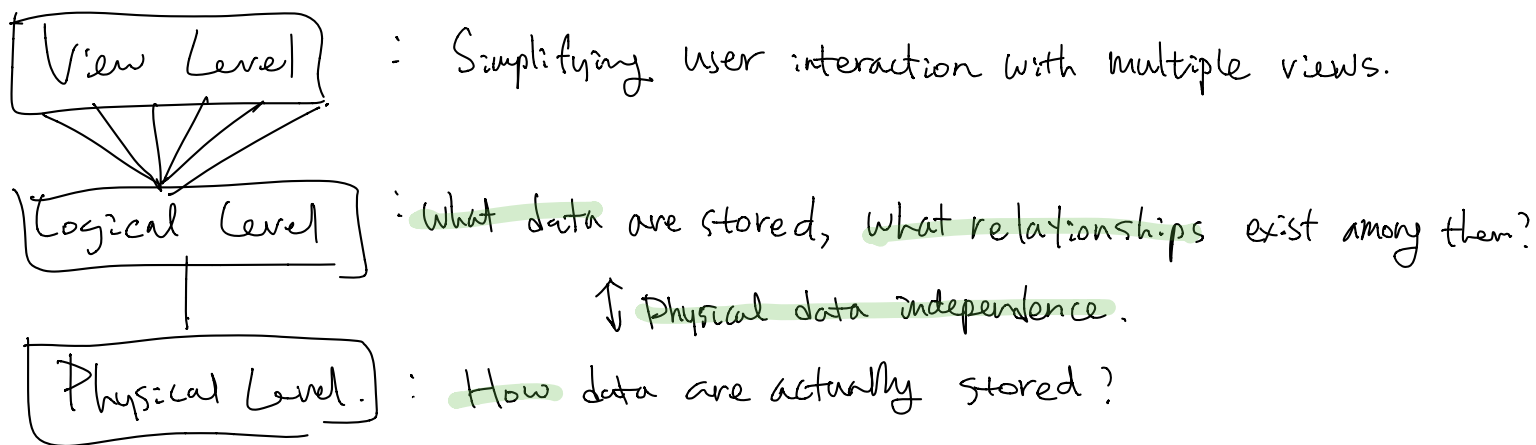 View Level : Simplifying user interaction with multiple views.
Logical Level : What data are stored, what relationships exist among them?
↕ Physical data independence.
Physical Level. : How data are actually stored?